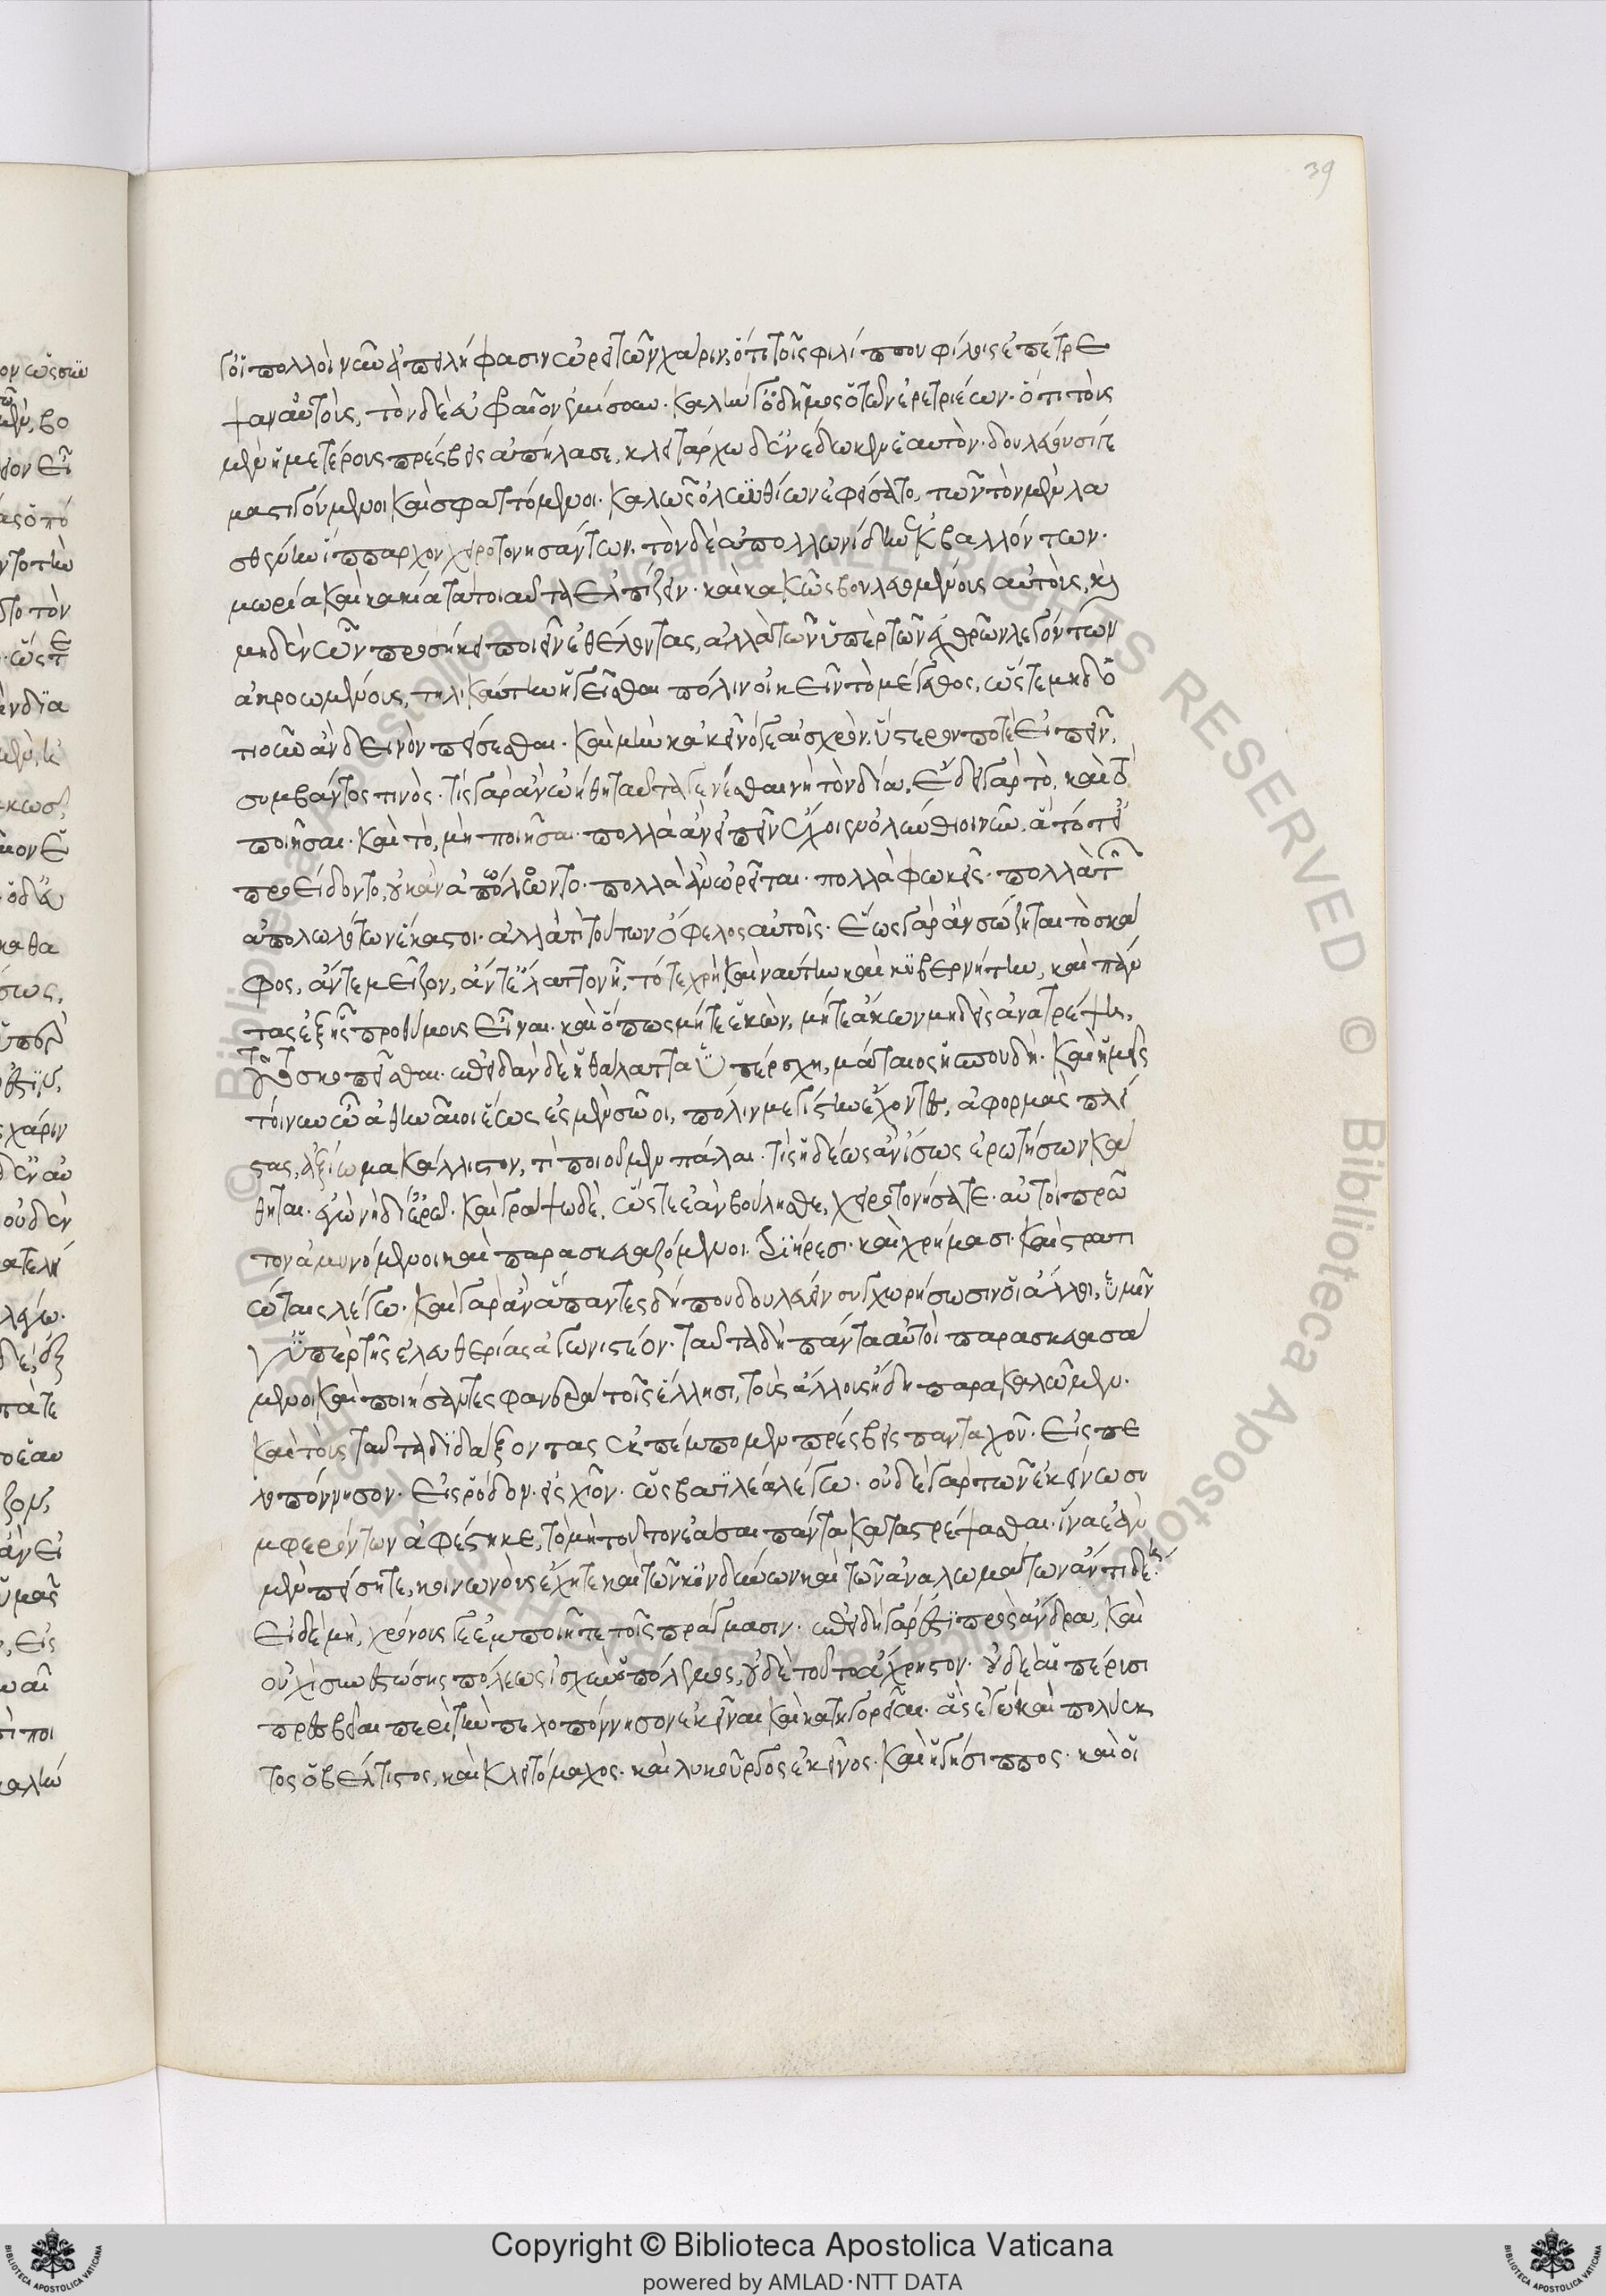 39
γ' οἱ πολλοὶ νῦν ἀπειλήφασιν ὠρειτῶν χάριν, ὅτι τοῖς φιλίππου φίλοις ἐπέτρε
ψαν αὑτοὺς, τὸν δὲ εὐφραῖον ἐώθουν· καλήν γ' ὁ δῆμος ὁ τῶν ἐρετριέων· ὅτι τοὺς
μὲν ἡμετέρους πρέσβεις ἀπήλασε, κλειτάρχῳ δ' ἐνέδωκεν ἑαυτόν· δουλεύουσί γε
μαστιγούμενοι καὶ σφαττόμενοι· καλῶς ὀλυνθίων ἐφείσατο, τῶν τὸν μὲν λα
σθένην ἵππαρχον χειροτονησάντων, τὸν δὲ ἀπολλωνίδην ἐκβαλλόντων·
μωρία καὶ κακία τὰ τοιαῦτα ἐλπίζειν· καὶ κακῶς βουλευομένους αὐτοὺς, καὶ
μηδὲν ὧν προσήκει ποιεῖν ἐθέλοντας, ἀλλὰ τῶν ὑπὲρ τῶν ἐχθρῶν λεγόντων
ἀκροωμένους, τηλικαύτην ἡγεῖσθαι πόλιν οἰκεῖν τὸ μέγεθος, ὥστε μηδ' ὁ
τιοῦν ἂν δεινὸν πείσεσθαι· καὶ μὴν κἀκεῖνό γε αἰσχρὸν, ὕστερόν ποτε εἰπεῖν,
συμβάντος τινὸς· τίς γὰρ ἂν ᾠήθη ταῦτα γενέσθαι νὴ τὸν δία, ἔδει γὰρ τὸ, καὶ τὸ
ποιῆσαι· καὶ τὸ, μὴ ποιῆσαι· πολλὰ ἂν εἰπεῖν ἔχοιεν ὀλύνθιοι νῦν, ἃ τότ' εἰ
προείδοντο, οὐκ ἂν ἀπώλοντο· πολλὰ ἂν ὠρεῖται· πολλὰ φωκεῖς· πολλὰ τῶν
ἀπολωλότων ἕκαστοι· ἀλλὰ τί τούτων ὄφελος αὐτοῖς· ἕως γὰρ ἂν σώζηται τὸ σκά
φος, ἄν τε μεῖζον, ἄν τε ἔλαττον ᾖ, τότε χρὴ καὶ ναύτην καὶ κυβερνήτην, καὶ πάν
τας ἑξῆς προθύμους εἶναι· καὶ ὅπως μήτε ἑκὼν, μήτε ἄκων μηδεὶς ἀνατρέψει,
τοῦτο σκοπεῖσθαι· ἐπειδὰν δὲ ἡ θάλαττα ὑπέρσχη, μάταιος ἡ σπουδή· καὶ ἡμεῖς
τοίνυν ὦ ἀθηναῖοι ἕως ἐσμὲν σῶοι, πόλιν μεγίστην ἔχοντες, ἀφορμὰς πλεί
στας, ἀξίωμα κάλλιστον, τί ποιοῦμεν πάλαι· τὶς ἡδέως ἂν ἴσως ἐρωτήσων κά
θηται· ἐγὼ νὴ δί' ἐρῶ· καὶ γράψω δὲ, ὥστε ἐὰν βούλησθε, χειροτονήσατε· αὐτοὶ πρῶ
τον ἀμυνόμενοι καὶ παρασκευαζόμενοι· τριήρεσι· καὶ χρήμασι· καὶ στρατι
ώταις λέγω· καὶ γὰρ ἂν ἅπαντες δήπου δουλεύειν συγχωρήσωσιν οἱ ἄλλοι, ἡμῖν
γ' ὑπὲρ τῆς ἐλευθερίας ἀγωνιστέον· ταῦτα δὴ πάντα αὐτοὶ παρασκευασά
μενοι καὶ ποιήσαντες φανερὰ τοῖς ἕλλησι, τοὺς ἄλλους ἤδη παρακαλῶμεν·
καὶ τοὺς ταῦτα διδάξοντας ἐκπέμπομεν πρέσβεις πανταχοῦ· εἰς πε
λοπόννησον· εἰς ῥόδον· εἰς χίον· ὡς βασιλέα λέγω· οὐδὲ γὰρ τῶν ἐκείνῳ συ
μφερόντων ἀφέστηκε, τὸ μὴ τοῦτον ἐᾶσαι πάντα καταστρέψασθαι· ἵνα ἐὰν
μὲν πείσητε, κοινωνοὺς ἔχητε καὶ τῶν κινδύνων καὶ τῶν ἀναλωμάτων ἄν τι δέῃ·
εἰ δὲ μὴ, χρόνους γε ἐμποιῆτε τοῖς πράγμασιν· ἐπειδὴ γάρ ἐστι πρὸς ἄνδρα, καὶ
οὐχὶ συνεστώσης πόλεως ἰσχὺν ὁ πόλεμος, οὐδὲ τοῦτο ἄχρηστον· οὐδὲ αἱ πέρυσι
πρεσβεῖαι περὶ τὴν πελοπόννησον ἐκεῖναι καὶ κατηγορίαι· ἃς ἐγὼ καὶ πολύευκ
τος ὁ βέλτιστος, καὶ κλειτόμαχος· καὶ λυκοῦργος ἐκεῖνος· καὶ ἡγήσιππος· καὶ οἱ
Copyright © Biblioteca Apostolica Vaticana
powered by AMLAD·NTT DATA